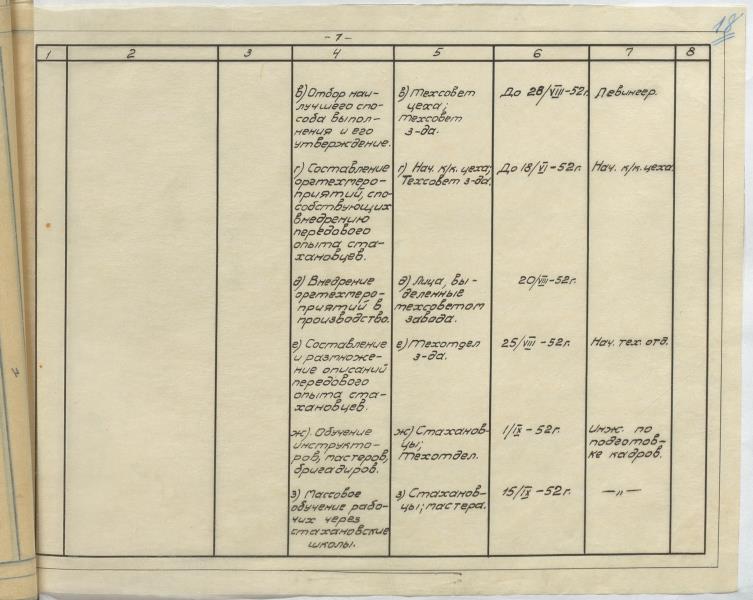 18
-7-
1 2 3 4 5 6 7 8
в) Отбор наи-
лучшего спо-
соба выпол-
нения и его
утверждение.
в) Техсовет
цеха;
техсовет
з-да.
До 28/VIII-52г.
Левингер.
г) Составление
оргтехмеро-
приятий, спо-
собствующих
внедрению
передового
опыта ста-
хановцев.
г) Нач. к/к. цеха;
Техсовет з-да.
До 18/VI-52г.
Нач. к/к. цеха.
д) Внедрение
оргтехмеро-
приятий в
производство.
д) Лица, вы-
деленные
техсоветом
завода.
20/VIII-52г.
е) Составление
и размноже-
ние описаний
передового
опыта ста-
хановцев.
е) Техотдел
з-да.
25/VIII-52г.
Нач. тех. отд.
ж). Обучение
инструкто-
ров, мастеров,
бригадиров.
ж) Стаханов-
цы;
Техотдел.
1/IX-52г.
Инж. по
подготов-
ке кадров.
з) Массовое
обучение рабо-
чих через
стахановские
школы.
з) Стаханов-
цы; мастера.
15/IX-52г.
—„—